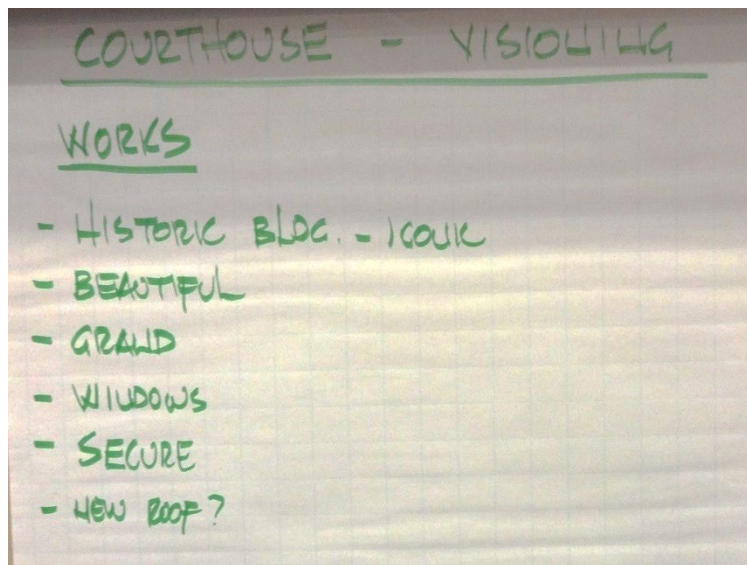 COURTHOUSE - VISIONING
WORKS
- HISTORIC BLDG. - ICONIC
- BEAUTIFUL
- GRAND
- WINDOWS
- SECURE
- NEW ROOF?